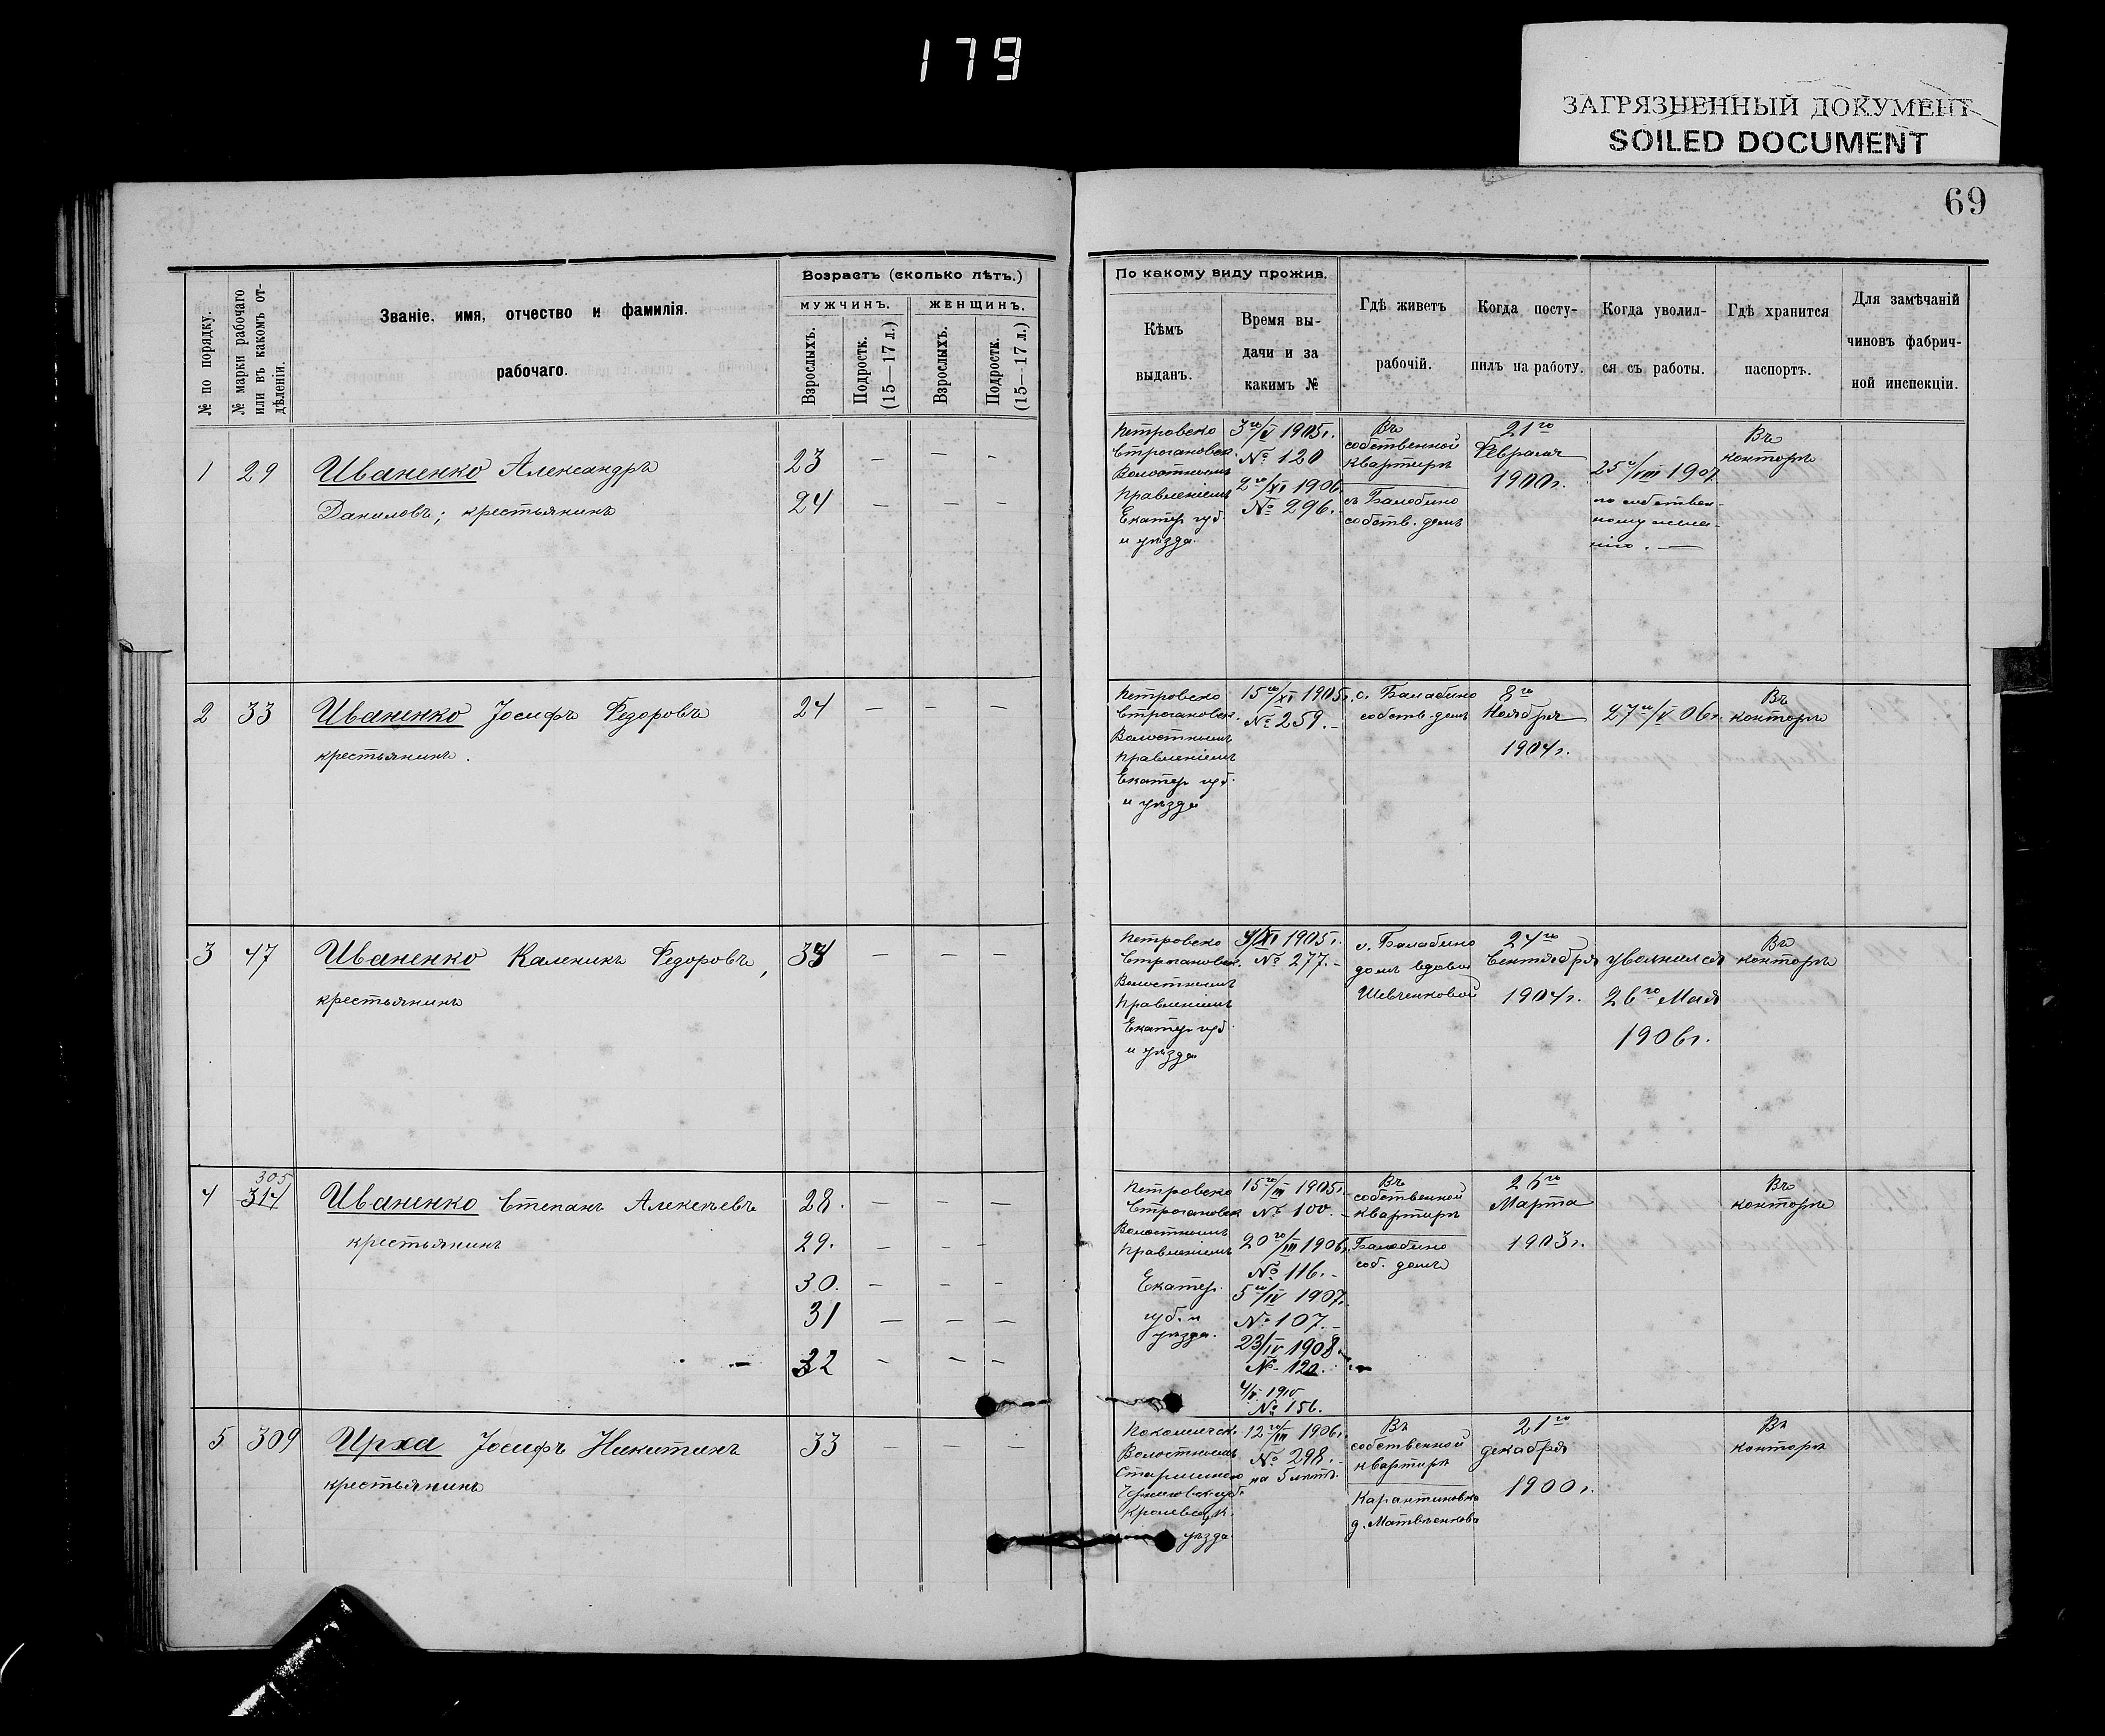 179
ЗАГРЯЗНЕННЫЙ ДОКУМЕНТ
SOILED DOCUMENT
69
№ по порядку.
№ марки рабочаго
или въ какомъ от-
дѣленіи.
Званіе, имя, отчество и фамилія.
рабочаго.
Возрастъ (сколько лѣтъ.)
МУЖЧИНЪ.
ЖЕНЩИНЪ.
Взрослыхъ.
Подростк.
(15—17 л.)
Взрослыхъ.
Подростк.
(15—17 л.)
По какому виду прожив.
Кѣмъ
выданъ.
Время вы-
дачи и за
какимъ №
Гдѣ живетъ
рабочій.
Когда посту-
пилъ на работу.
Когда уволил-
ся съ работы.
Гдѣ хранится
паспортъ.
Для замѣчаній
чиновъ фабрич-
ной инспекціи.
1
29
Иваненко Александръ
Даниловъ; крестьянинъ
23 — — —
24 — — —
Петровско
Строгановск.
Волостнымъ
Правленіемъ
Екатер. губ.
и уѣзда.
3го/V 1905г.
№ 120
2го/XI 1906.
№ 296.
Въ
собственной
квартирѣ
с. Балабино
собств. домъ
21го
Февраля
1900г.
25го/VIII 1907
по собствен-
ному жела-
нію. —
Въ
конторѣ
2
33
Иваненко Іосифъ Федоровъ
крестьянинъ.
24 — — —
Петровско
Строгановск.
Волостнымъ
Правленіемъ
Екатер. губ.
и уѣзда
15го/XI 1905г.
№ 259.
с. Балабино
собств. домъ
8го
Ноября
1904г.
27го/V 06г.
Въ
конторѣ
3
47
Иваненко Каленикъ Федоровъ,
крестьянинъ
— — —
Петровско
Строгановск.
Волостнымъ
Правленіемъ
Екатер. губ.
и уѣзда
/XI 1905г.
№ 277.
с. Балабино
домъ вдовы
Шевченковой
24го
Сентября
1904г.
уволился
26го Мая
1906г.
Въ
конторѣ
4
305
314
Иваненко Степанъ Алексѣевъ
крестьянинъ
28. — — —
29. — — —
30. — — —
31 — — —
32 — — —
Петровско
Строгановск
Волостнымъ
Правленіемъ
Екатер.
губ. и
уѣзда.
15го/III 1905г.
№ 100.
20го/III 1906г.
№ 116.
5го/IV 1907г.
№ 107.
23/IV 1908
№ 120.
4/V 1910
№ 156.
Въ
собственной
квартирѣ
Балабино
соб. домъ
26го
Марта
1903г.
Въ
конторѣ
5
309
Ирха Іосифъ Никитинъ
крестьянинъ
33 — —
Волостнымъ
Старшиною
Черниговск. губ.
Кролевецк.
уѣзда
12го/VII 1906г.
№ 298.
на 5 лѣтъ.
Въ
собственной
квартирѣ
Карантиновка
д. Матвѣенкова
21го
декабря
1900г.
Въ
конторѣ